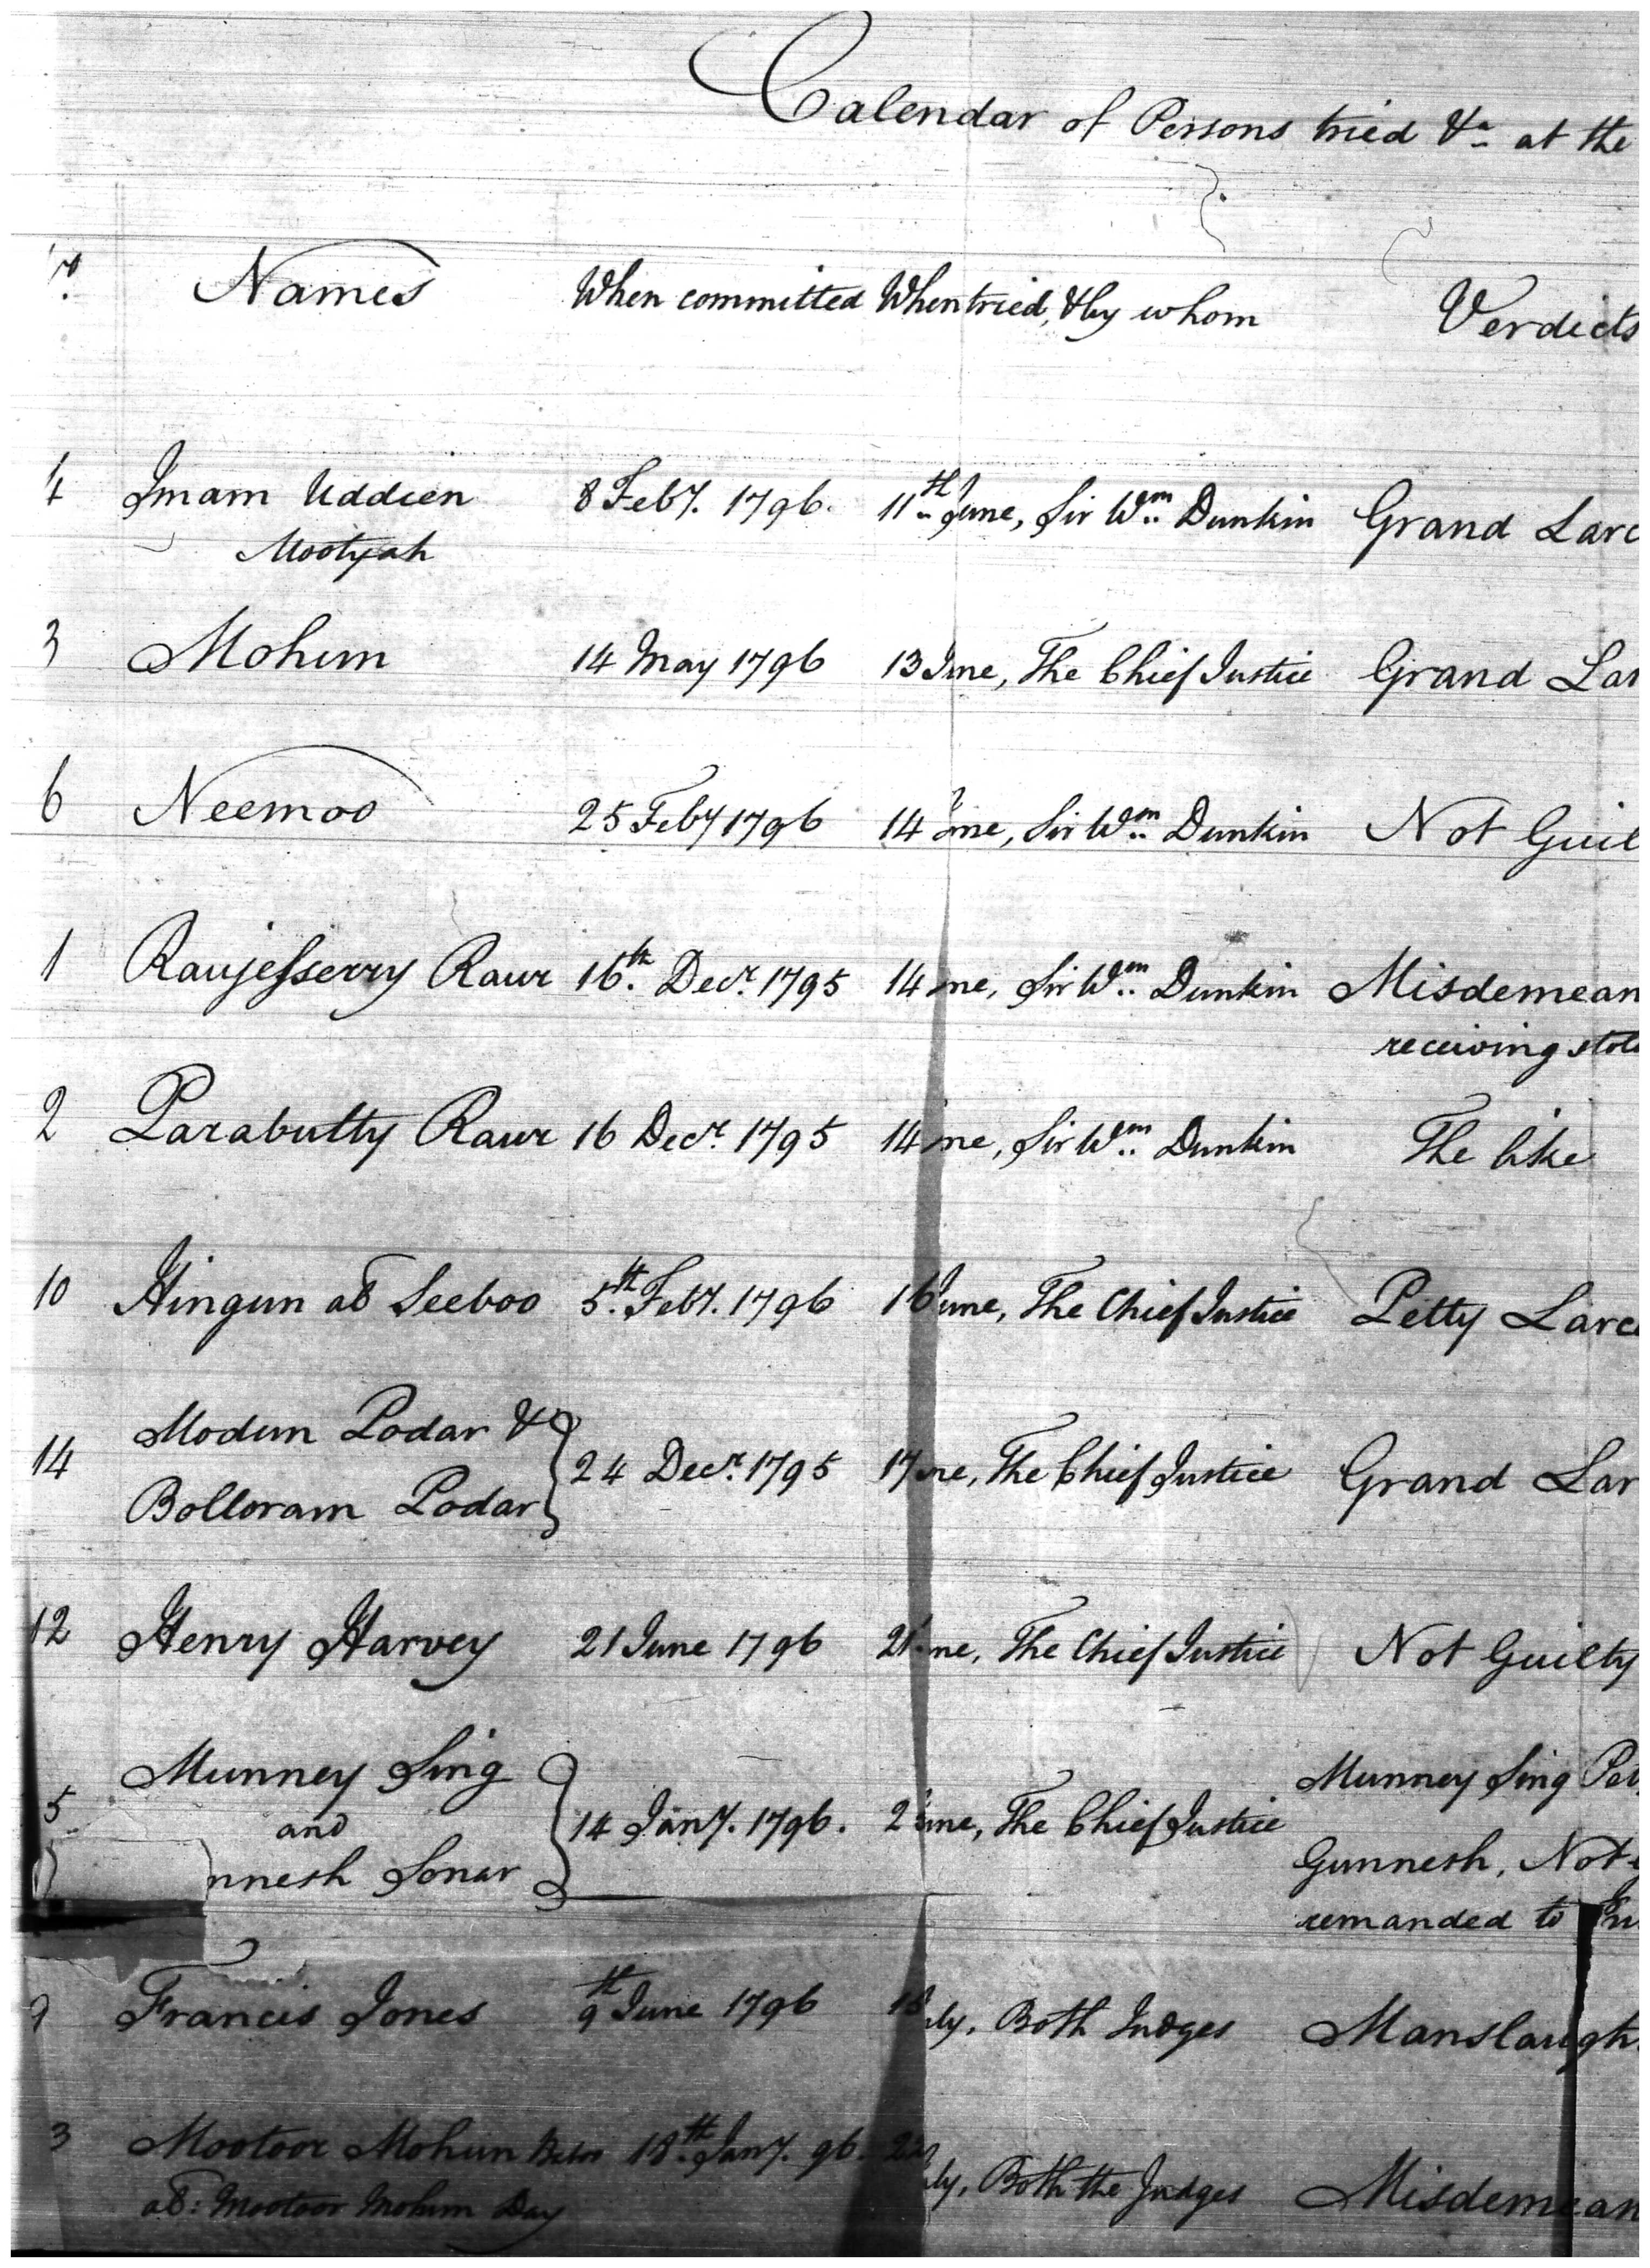 Calendar of Persons tried &a at the
Names When committed When tried, & by whom Verdicts
4 Imam Uddeen 8 Feby. 1796. 11th June, Sir Wm Dunkin Grand Larc
Mootyah
3 Mohun 14 May 1796 13 June, The Chief Justice Grand Lar
6 Neemoo 25 Feby 1796 14 June, Sir Wm Dunkin Not Guil
1 Raujesserry Raur 16th Decr. 1795 14 ne, Sir Wm Dunkin Misdemean
receiving stole
2 Parabutty Raur 16 Decr. 1795 14 ne, Sir Wm Dunkin The like
10 Hingun as Seeboo 5th Feby. 1796 16 June, The Chief Justice Petty Larce
Modun Podar &
14 24 Decr. 1795 17 ne, The Chief Justice Grand Lar
Bolloram Podar
12 Henry Harvey 21 June 1796 21 ne, The Chief Justice Not Guilty
Munney Sing Munney Sing Pet
5 and 14 Jany. 1796. 2 une, The Chief Justice
nnesh Sonar Gunnesh, Not g
remanded to
Francis Jones 9th June 1796 uly, Both Judges Manslaugh
3 Mootoor Mohun 18th Jany. 96. 22 uly, Both the Judges Misdemean
as: Mootoor Mohun Day